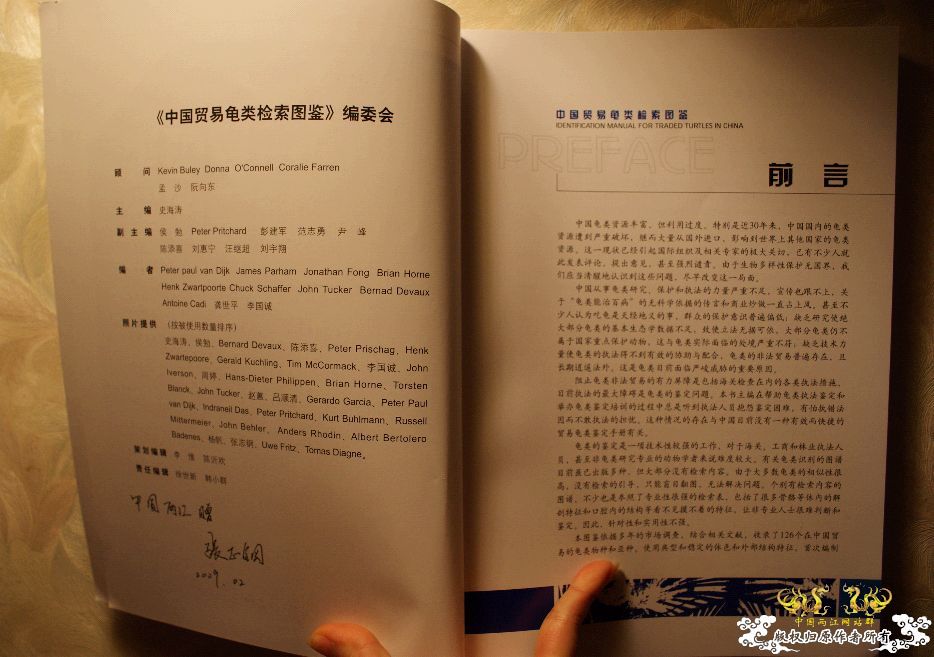 《中国贸易龟类检索图鉴》编委会
顾 问 Kevin Buley Donna O'Connell Coralie Farren
孟 沙 阮向东
主 编 史海涛
副主编 侯 勉 Peter Pritchard 彭建军 范志勇 尹 峰
陈添喜 刘惠宁 汪继超 刘宇翔
编 者 Peter paul van Dijk James Parham Jonathan Fong Brian Horne
Henk Zwartpoorte Chuck Schaffer John Tucker Bernad Devaux
Antoine Cadi 龚世平 李国诚
照片提供 (按被使用数量排序)
史海涛、侯勉、Bernard Devaux、陈添喜、Peter Prischag、Henk
Zwartepoore、Gerald Kuchling、Tim McCormack、李国诚、John
Iverson、周婷、Hans-Dieter Philippen、Brian Horne、Torsten
Blanck、John Tucker、赵蕙、吕顺清、Gerardo Garcia、Peter Paul
van Dijk、Indraneil Das、Peter Pritchard、Kurt Buhlmann、Russell
Mittermeier、John Behler、Anders Rhodin、Albert Bertolero
Badenes、杨帆、张志钢、Uwe Fritz、Tomas Diagne。
策划编辑 李 惟 陈沂欢
责任编辑 徐世新
中国两江 赠
中国贸易龟类检索图鉴
IDENTIFICATION MANUAL FOR TRADED TURTLES IN CHINA
PREFACE
前 言
中国龟类资源丰富，但利用过度，特别是近30年来，中国国内的龟类
资源遭到严重破坏，继而大量从国外进口，影响到世界上其他国家的龟类
资源。这一现状已经引起国际组织及相关专家的极大关切，已有不少人就
此发表评论，提出意见，甚至强烈谴责。由于生物多样性保护无国界，我
们应当清醒地认识到这些问题，尽早改变这一局面。
中国从事龟类研究、保护和执法的力量严重不足，宣传也跟不上，关
于“龟类能治百病”的无科学依据的传言和商业炒做一直占上风，甚至不
少人认为吃龟是天经地义的事，群众的保护意识普遍偏低；缺乏研究使绝
大部分龟类的基本生态学数据不足，致使立法无据可依，大部分龟类仍不
属于国家重点保护动物，这与龟类实际面临的处境严重不符；缺乏技术力
量使龟类的执法得不到有效的协助与配合，龟类的非法贸易普遍存在，且
长期逍遥法外。这是龟类目前面临严峻威胁的重要原因。
阻止龟类非法贸易的有力屏障是包括海关检查在内的各类执法措施，
目前执法的最大障碍是龟类的鉴定问题。本书主编在帮助龟类执法鉴定和
举办龟类鉴定培训的过程中总是听到执法人员抱怨鉴定困难，有怕执错法
因而不敢执法的担忧。这种情况的存在与中国目前没有一种有效而快捷的
贸易龟类鉴定手册有关。
龟类的鉴定是一项技术性较强的工作，对于海关、工商和林业执法人
员，甚至非龟类研究专业的动物学者来说难度较大。有关龟类识别的图谱
目前虽已出版多种，但大部分没有检索内容。由于大多数龟类的相似性很
高，没有检索的引导，只能盲目翻图，无法解决问题。个别有检索内容的
图谱，不少也是参照了专业性很强的检索表，包括了很多骨骼等体内的解
剖特征和口腔内的结构等看不见摸不着的特征，让非专业人士很难判断和
鉴定。因此，针对性和实用性不强。
本图鉴依据多年的市场调查，结合相关文献，收录了126个在中国贸
易的龟类物种和亚种，使用典型和稳定的体色和外部结构特征，首次编制
中国两江网站群
版权归原作者所有